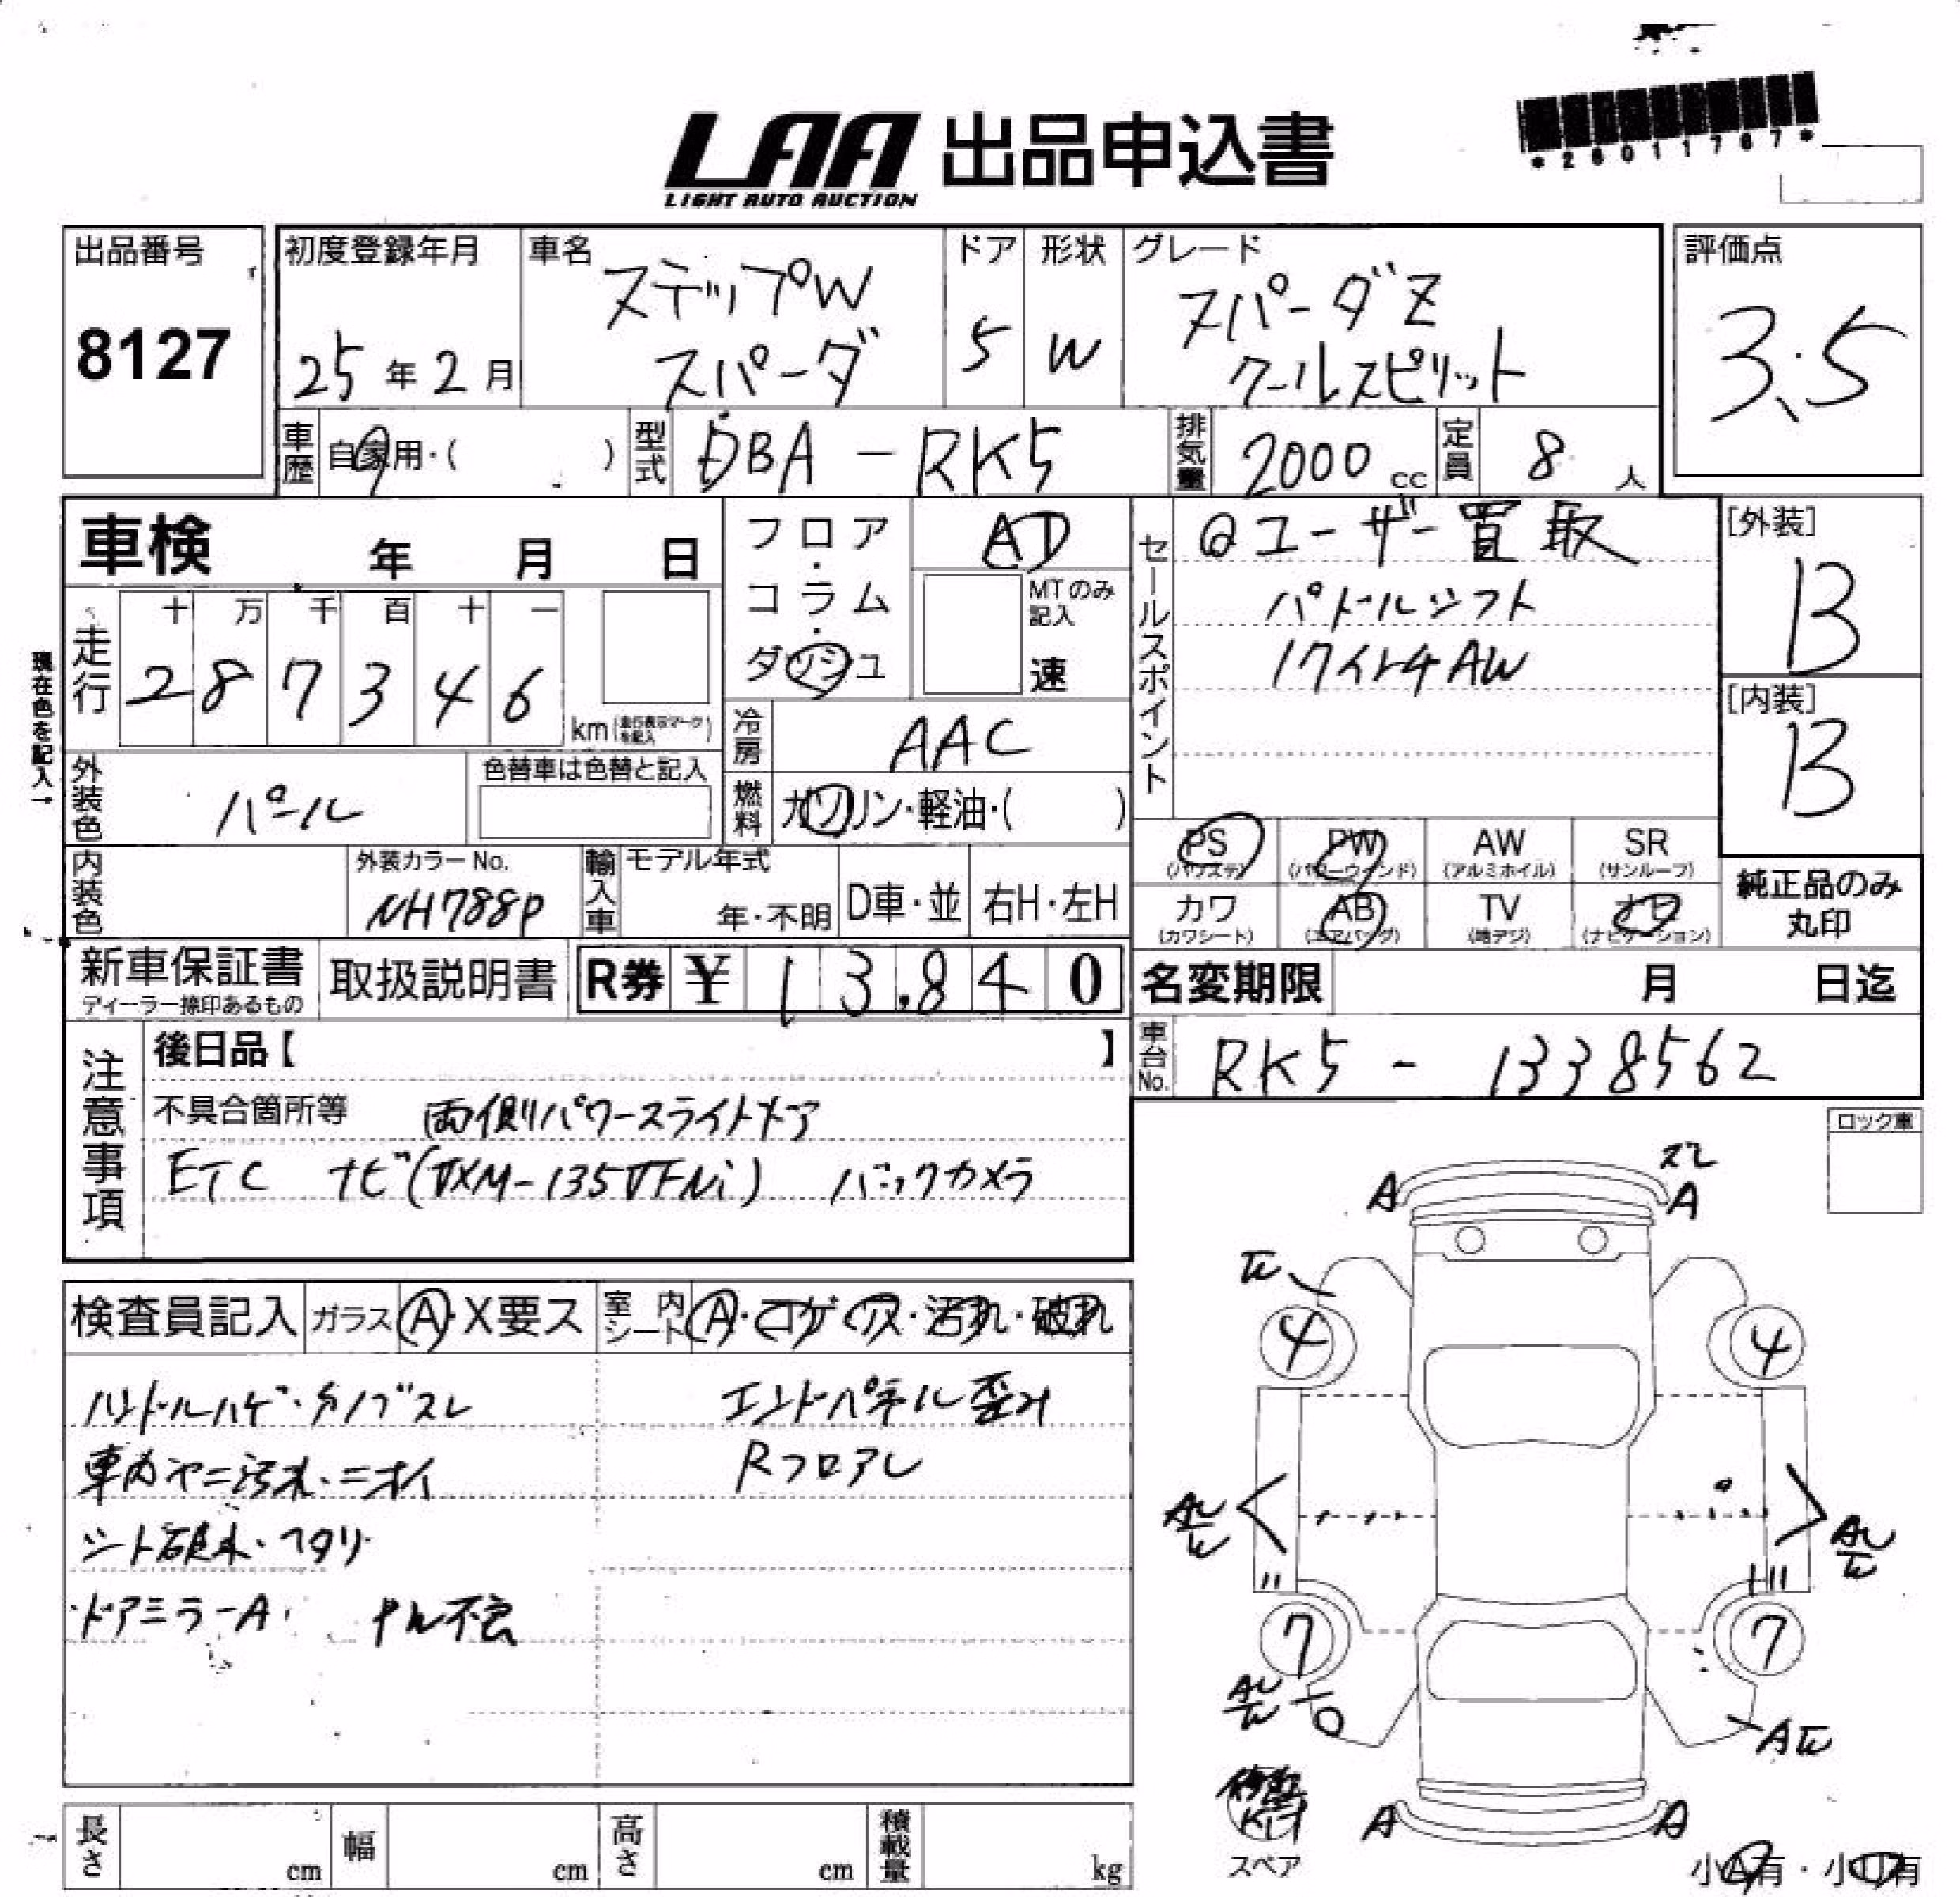 *26011767*
LAA 出品申込書
LIGHT AUTO AUCTION
出品番号
8127
初度登録年月
25年2月
車名
ステップW
スパーダ
ドア
5
形状
W
グレード
スパーダZ
クールスピリット
評価点
3.5
車歴 自家用・( )
型式 DBA-RK5
排気量 2000cc
定員 8人
車検 年 月 日
フロア・コラム・ダッシュ
AT
MTのみ記入
速
セールスポイント
@ユーザー買取
パドルシフト
17インチAW
[外装]
B
[内装]
B
現在色を記入→
走行
十 万 千 百 十 一
2 8 7 3 4 6
km(走行表示マークを記入)
冷房 AAC
燃料 ガソリン・軽油・( )
外装色 パール
色替車は色替と記入
内装色
外装カラーNo.
NH788P
輸入車
モデル年式
年・不明
D車・並
右H・左H
PS (パワステ)
PW (パワーウィンド)
AW (アルミホイル)
SR (サンルーフ)
カワ (カワシート)
AB (エアバッグ)
TV (地デジ)
ナビ (ナビゲーション)
純正品のみ
丸印
新車保証書
ディーラー捺印あるもの
取扱説明書
R券 ¥ 13,840
名変期限 月 日迄
車台No. RK5-1338562
注意事項
後日品【 】
不具合箇所等 両側パワースライドドア
ETC ナビ(VXM-135VFNi) バックカメラ
ロック車
検査員記入
ガラス A・X要ス
室内シート A・コゲ・穴・汚れ・破れ
ハンドルハゲ・ノブスレ
車内ヤニ汚れ・ニオイ
シート破れ・ヘタリ
ドアミラーA
エンドパネル歪み
Rフロアレ
スレ
A
A
4
4
7
7
A
A
スペア
小A有・小U有
長さ cm
幅 cm
高さ cm
積載量 kg